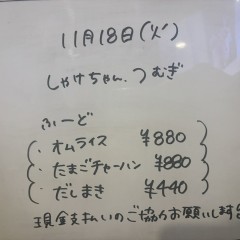 11月18日(火)
しゃけちゃん、つむぎ
ふーど
・オムライス ¥880
・たまごチャーハン ¥880
・だしまき ¥440
現金支払いのご協力お願いします